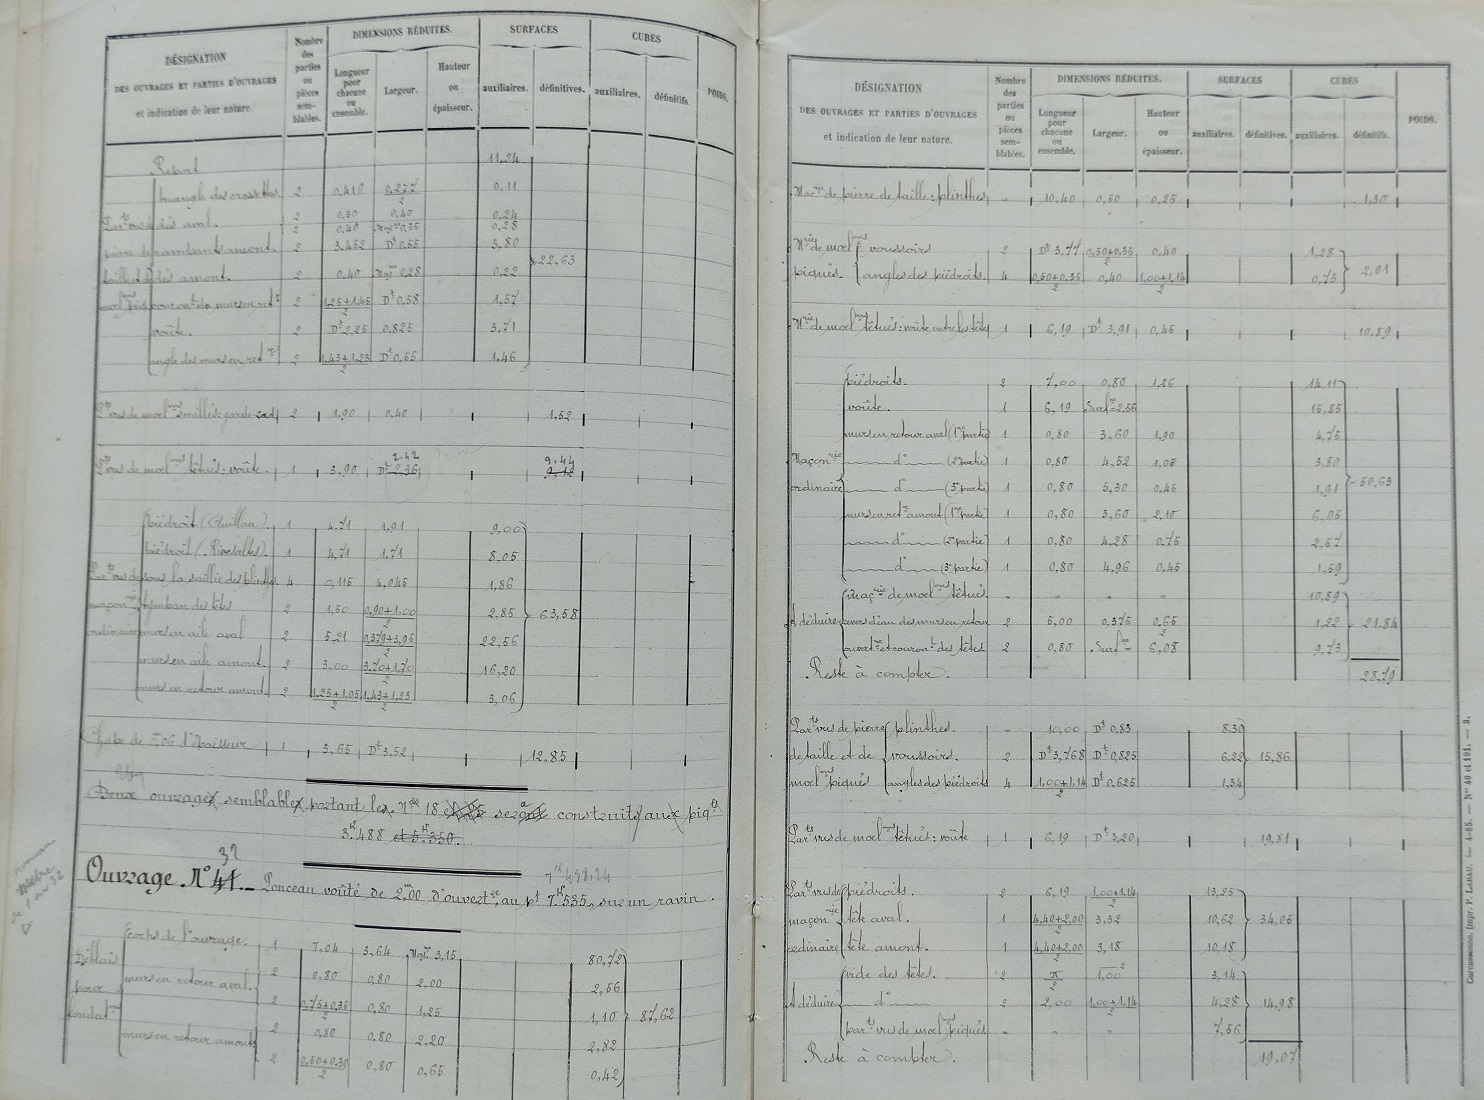 DÉSIGNATION
DES OUVRAGES ET PARTIES D'OUVRAGES
et indication de leur nature.
Nombre des parties ou pièces semblables.
DIMENSIONS RÉDUITES.
Longueur pour chacune ou ensemble.
Largeur.
Hauteur ou épaisseur.
SURFACES
auxiliaires.
définitives.
CUBES
auxiliaires.
définitifs.
POIDS.
Report 11,24
triangle des crossettes 2 0,416 0,277/2 0,11
dés aval. 2 0,50 0,40 0,24
2 0,40 0,35 0,28
rampants amont. 2 3,452 Dt 0,55 3,80
22,63
dés amont. 2 0,40 0,28 0,22
couront des murs en ret. 2 1,25+1,45/2 Dt 0,58 1,57
voûte. 2 Dt 2,25 0,825 3,71
angle des murs en ret. 2 1,43+1,23/2 Dt 0,55 1,46
Parts vus de moelons smillés : garde rad 2 1,90 0,40 1,52
2.42 9.44
Parts vus de moelons têtués : voûte. 1 3,90 Dt 2,36
piédroit (Quillan). 1 4,71 1,91 9,00
piédroit (Rivesaltes). 1 4,71 1,71 8,05
Parts vus de sous la saillie des plinthes. 4 0,115 4,045 1,86
maçonrie tympan des têtes 2 1,50 0,90+1,00/2 2,85 63,58
ordinaire murs en aile aval 2 5,21 0,379+3,95/2 22,56
murs en aile amont. 2 3,00 3,70+1,70/2 16,20
murs en retour amont. 2 1,25+1,05/2 1,43+1,23/2 3,06
Chape de 0,06 d'épaisseur 1 3,65 Dt 3,52 12,85
Deux ouvrages semblables portant les Nos 18 et seront construits aux piqts
3k.488 et 5k.350.
37
Ouvrage. No 41. — Ponceau voûté de 2m,00 d'ouvertre, au pt 7k.535, sur un ravin.
7k 498.24
corps de l'ouvrage. 1 7,04 3,64 3,15 80,72
Déblais murs en retour aval. 2 0,80 0,80 2,00 2,56
pour 2 0,75+0,35/2 0,80 1,25 1,10 87,62
fondatons murs en retour amont 2 0,80 0,80 2,20 2,82
2 0,50+0,30/2 0,80 0,65 0,42
DÉSIGNATION
DES OUVRAGES ET PARTIES D'OUVRAGES
et indication de leur nature.
Nombre des parties ou pièces semblables.
DIMENSIONS RÉDUITES.
Longueur pour chacune ou ensemble.
Largeur.
Hauteur ou épaisseur.
SURFACES
auxiliaires.
définitives.
CUBES
auxiliaires.
définitifs.
POIDS.
Macrie de pierre de taille : plinthes " 10,40 0,50 0,25 1,30
Mrie de moelons voussoirs 2 Dt 3,77 0,50+0,35/2 0,40 1,28
piqués. angles des piédroits. 4 0,50+0,35/2 0,40 1,00+1,14/2 0,73 2,01
Mrie de moelons têtués : voûte entre les têtes 1 6,19 Dt 3,91 0,45 10,89
piédroits. 2 7,00 0,80 1,26 14,11
voûte. 1 6,19 Surfce = 2,56 15,85
murs en retour aval (1re partie) 1 0,80 3,60 1,90 4,75
Maçonrie do (2e partie) 1 0,80 4,52 1,05 3,80
ordinaire do (3e partie) 1 0,80 5,30 0,45 1,91 50,63
murs en ret. amont (1re partie) 1 0,80 3,60 2,10 6,05
do (2e partie) 1 0,80 4,28 0,75 2,57
do (3e partie) 1 0,80 4,96 0,45 1,59
Maçrie de moelons têtués " " " " 10,89
A déduire devers d'eau des murs en retour 2 5,00 0,375 0,65/2 1,22 21,84
ouvertre et couront des têtes 2 0,80 Surfce = 6,08 9,73
Reste à compter. 28,79
Parts vus de pierre plinthes. " 10,00 Dt 0,83 8,30
de taille et de voussoirs. 2 Dt 3,768 Dt 0,825 6,22 15,86
moelons piqués angles des piédroits 4 1,00+1,14/2 Dt 0,625 1,34
Parts vus de moelons têtués : voûte 1 6,19 Dt 3,20 19,81
Parts vus de piédroits. 2 6,19 1,00+1,14/2 13,25
maçonrie tête aval. 1 4,40+2,00/2 3,32 10,62 34,05
ordinaire tête amont. 1 4,40+2,00/2 3,18 10,18
vide des têtes. 2 π/2 1,00² 3,14
A déduire do 2 2,00 1,00+1,14/2 4,28 14,98
parts vus de moelons piqués " " " 7,56
Reste à compter. 19,07
Carcassonne, Impr. P. Labau. — 4-85. — Nos 40 et 101. — 3.